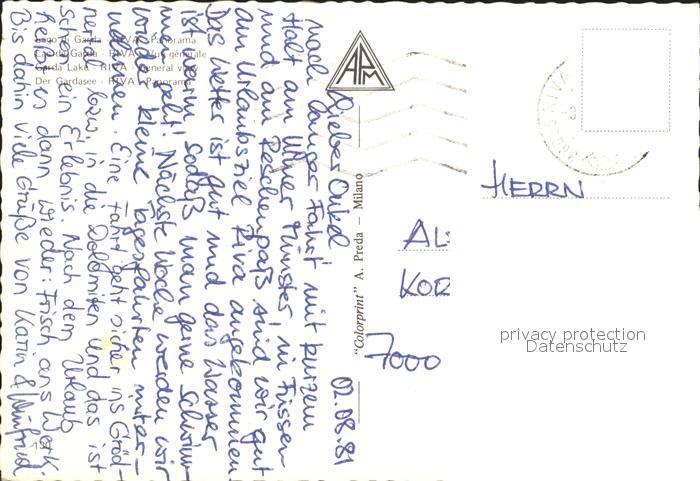 Lago di Garda - RIVA - Panorama
Lac de Garda - RIVA - Vue générale
Garda Lake - RIVA - General view
Der Gardasee - RIVA - Panorama
APM
"Colorprint" A. Preda - Milano
02.08.81
Lieber Onkel
nach langer Fahrt mit kurzem
Halt am Ulmer Münster, in Füssen
und am Reschenpaß sind wir gut
am Urlaubsziel Riva angekommen
Das Wetter ist gut und das Wasser
ist warm, sodaß man gerne schwim-
men geht! Nächste Woche werden wir
wieder kleine Tagesfahrten unter-
nehmen. Eine Fahrt geht sicher ins Gröd-
nertal bzw. in die Dolomiten und das ist
schon ein Erlebnis. Nach dem Urlaub
heißt es dann wieder: Frisch ans Werk.
Bis dahin viele Grüße von Karin & Winfried
HERRN
AL
KOR
7000
privacy protection
Datenschutz